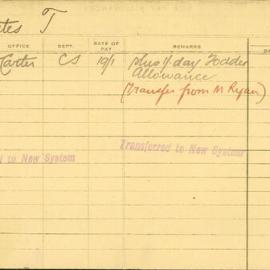 tes T
OFFICE DEPT. RATE OF PAY REMARKS DA
Carter CS 10/1 plus 1/ day Fodder
Allowance
(Transfer from M Ryan)
d to New System Transferred to New System